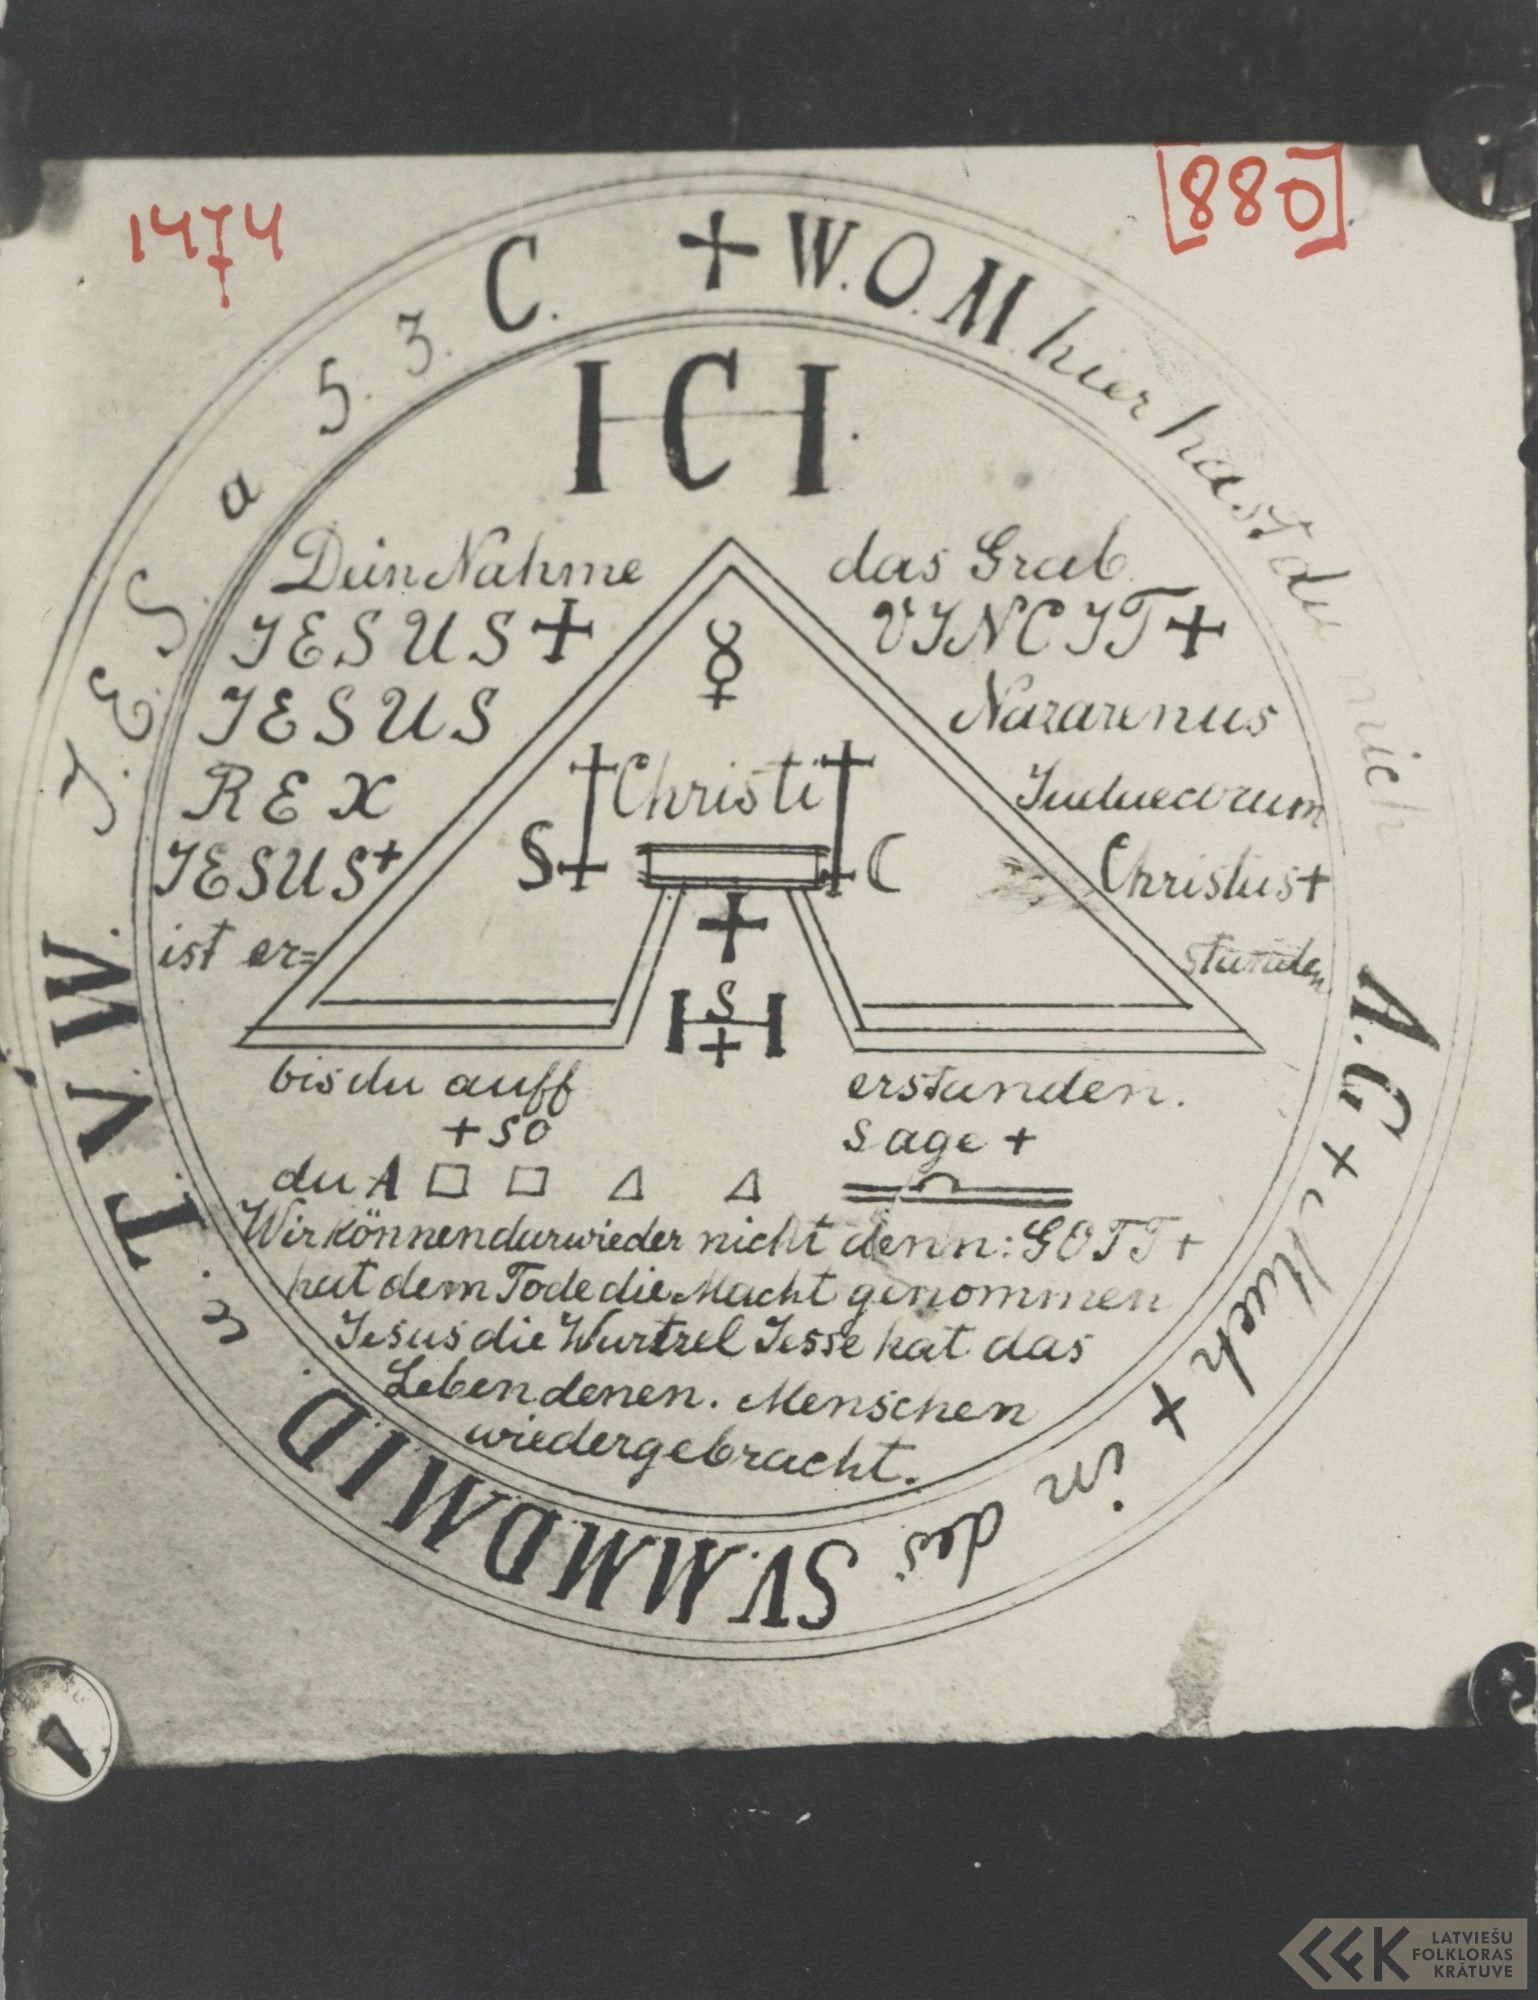 1474
[880]
+ W. O. M. hier hast du mich A. G + Mach + in des SV. M. M. D. M. I. D. u. T. V. W. J. E. S. a 5. 3. C.
ICI.
Dein Nahme das Grab
JESUS + VINCIT +
JESUS Nazarenus
REX Iudaeorum
JESUS + Christus +
ist er= standen
☿
Christi
S C
+
H S H
+
bis du auff erstanden.
+ so sage +
du A □ □ △ △
Wir können darwieder nicht denn: GOTT +
hat dem Tode die Macht genommen
Jesus die Wurtzel Jesse hat das
Leben denen. Menschen
wiedergebracht.
LFK LATVIEŠU
FOLKLORAS
KRĀTUVE